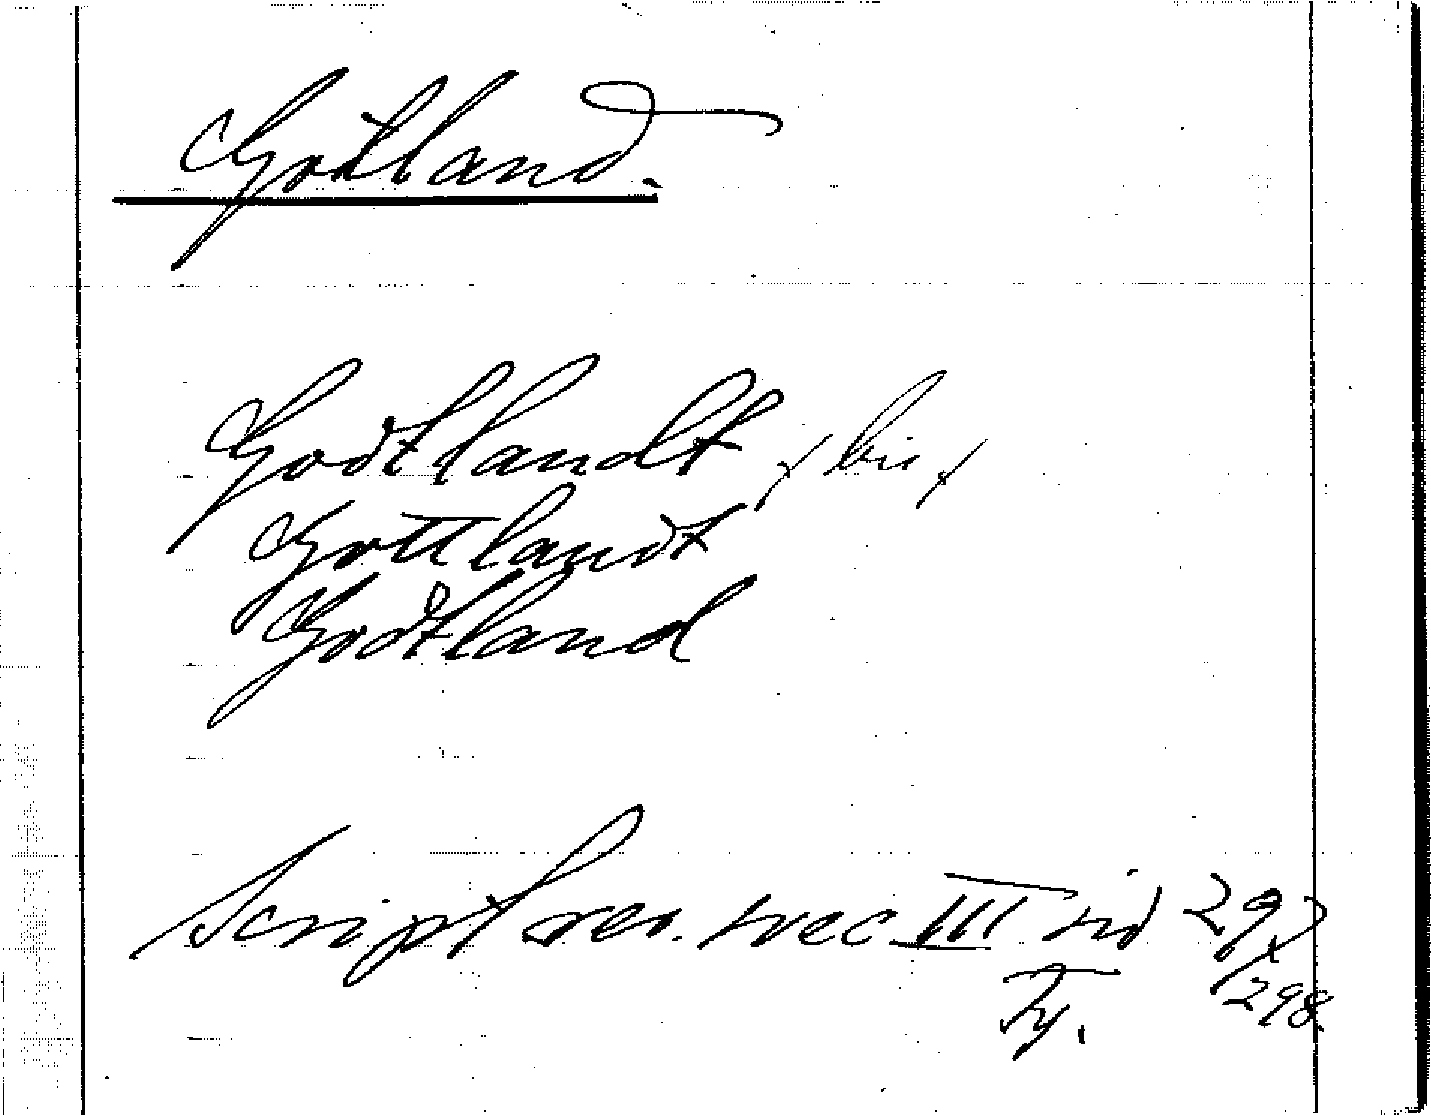 Gotland.
Godtlandt, bis,
Gottlandt
Godtland
Script rer. svec III sid 297
298.
Ty.